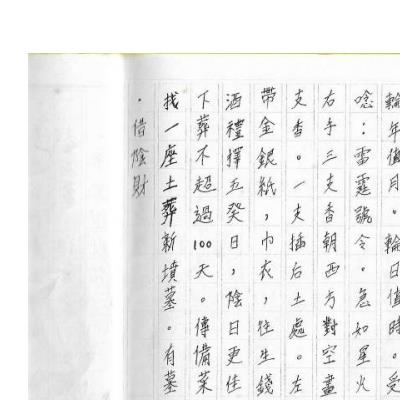 ·借陰財
找一座土葬新墳墓。有墓
下葬不超過100天。傳備菜
酒禮擇五癸日，陰日更佳
帶金銀紙，巾衣，往生錢
支香。一支插后土處。左
右手三支香朝西方對空畫
唸：雷霆號令。急如星火
輪年值月。輪日值時。受